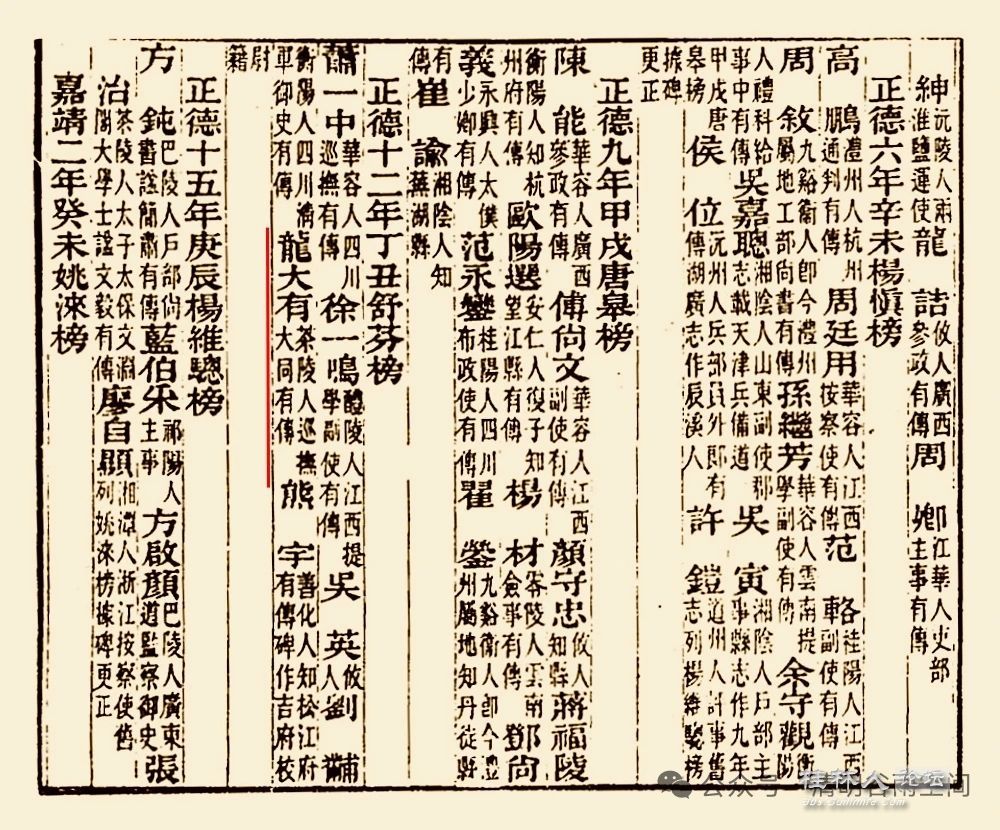 紳沅陵人兩淮鹽運使龍誥攸人廣西參政有傳周卿江華人吏部主事有傳
正德六年辛未楊愼榜
高鵬澧州人杭州通判有傳周廷用華容人江西按察使有傳范輅桂陽人江西副使有傳
周敘九谿衞人卽今澧州屬地工部尚書有傳孫繼芳華容人雲南提學副使有傳余守觀衡陽
人禮科給事中有傳吳嘉聰湘陰人山東副使郡志載天津兵備道吳寅湘陰人戶部主事縣志作九年
甲戌唐皋榜侯位沅州人兵部員外郎有傳湖廣志作辰溪人許鎧道州人評事舊志列楊維聰榜
據碑更正
正德九年甲戌唐皋榜
陳能華容人廣西參政有傳傅尚文華容人江西副使有傳顏守忠攸人知縣蔣福陵
衡陽人知杭州府有傳歐陽選安仁人復子知望江縣有傳楊材零陵人雲南僉事有傳鄧尚
義永興人太僕少卿有傳范永鑾桂陽人四川布政使有傳瞿鎣九谿衞人卽今澧州屬地知丹徒縣
有傳崔諭湘陰人知蕪湖縣
正德十二年丁丑舒芬榜
蕭一中華容人四川巡撫有傳徐一鳴醴陵人江西提學副使有傳吳英攸人劉黼
衡陽人四川淸軍御史有傳龍大有茶陵人巡撫大同有傳熊宇善化人知松江府有傳碑作吉府校
尉籍
正德十五年庚辰楊維聰榜
方鈍巴陵人戶部尚書諡簡肅有傳藍伯采祁陽人主事方啟顏巴陵人廣東道監察御史張
治茶陵人太子太保文淵閣大學士諡文毅有傳廖自顯湘潭人浙江按察使舊列姚淶榜據碑更正
嘉靖二年癸未姚淶榜
公众号·清明谷雨空间
桂林人论坛
bbs.guilinlife.com